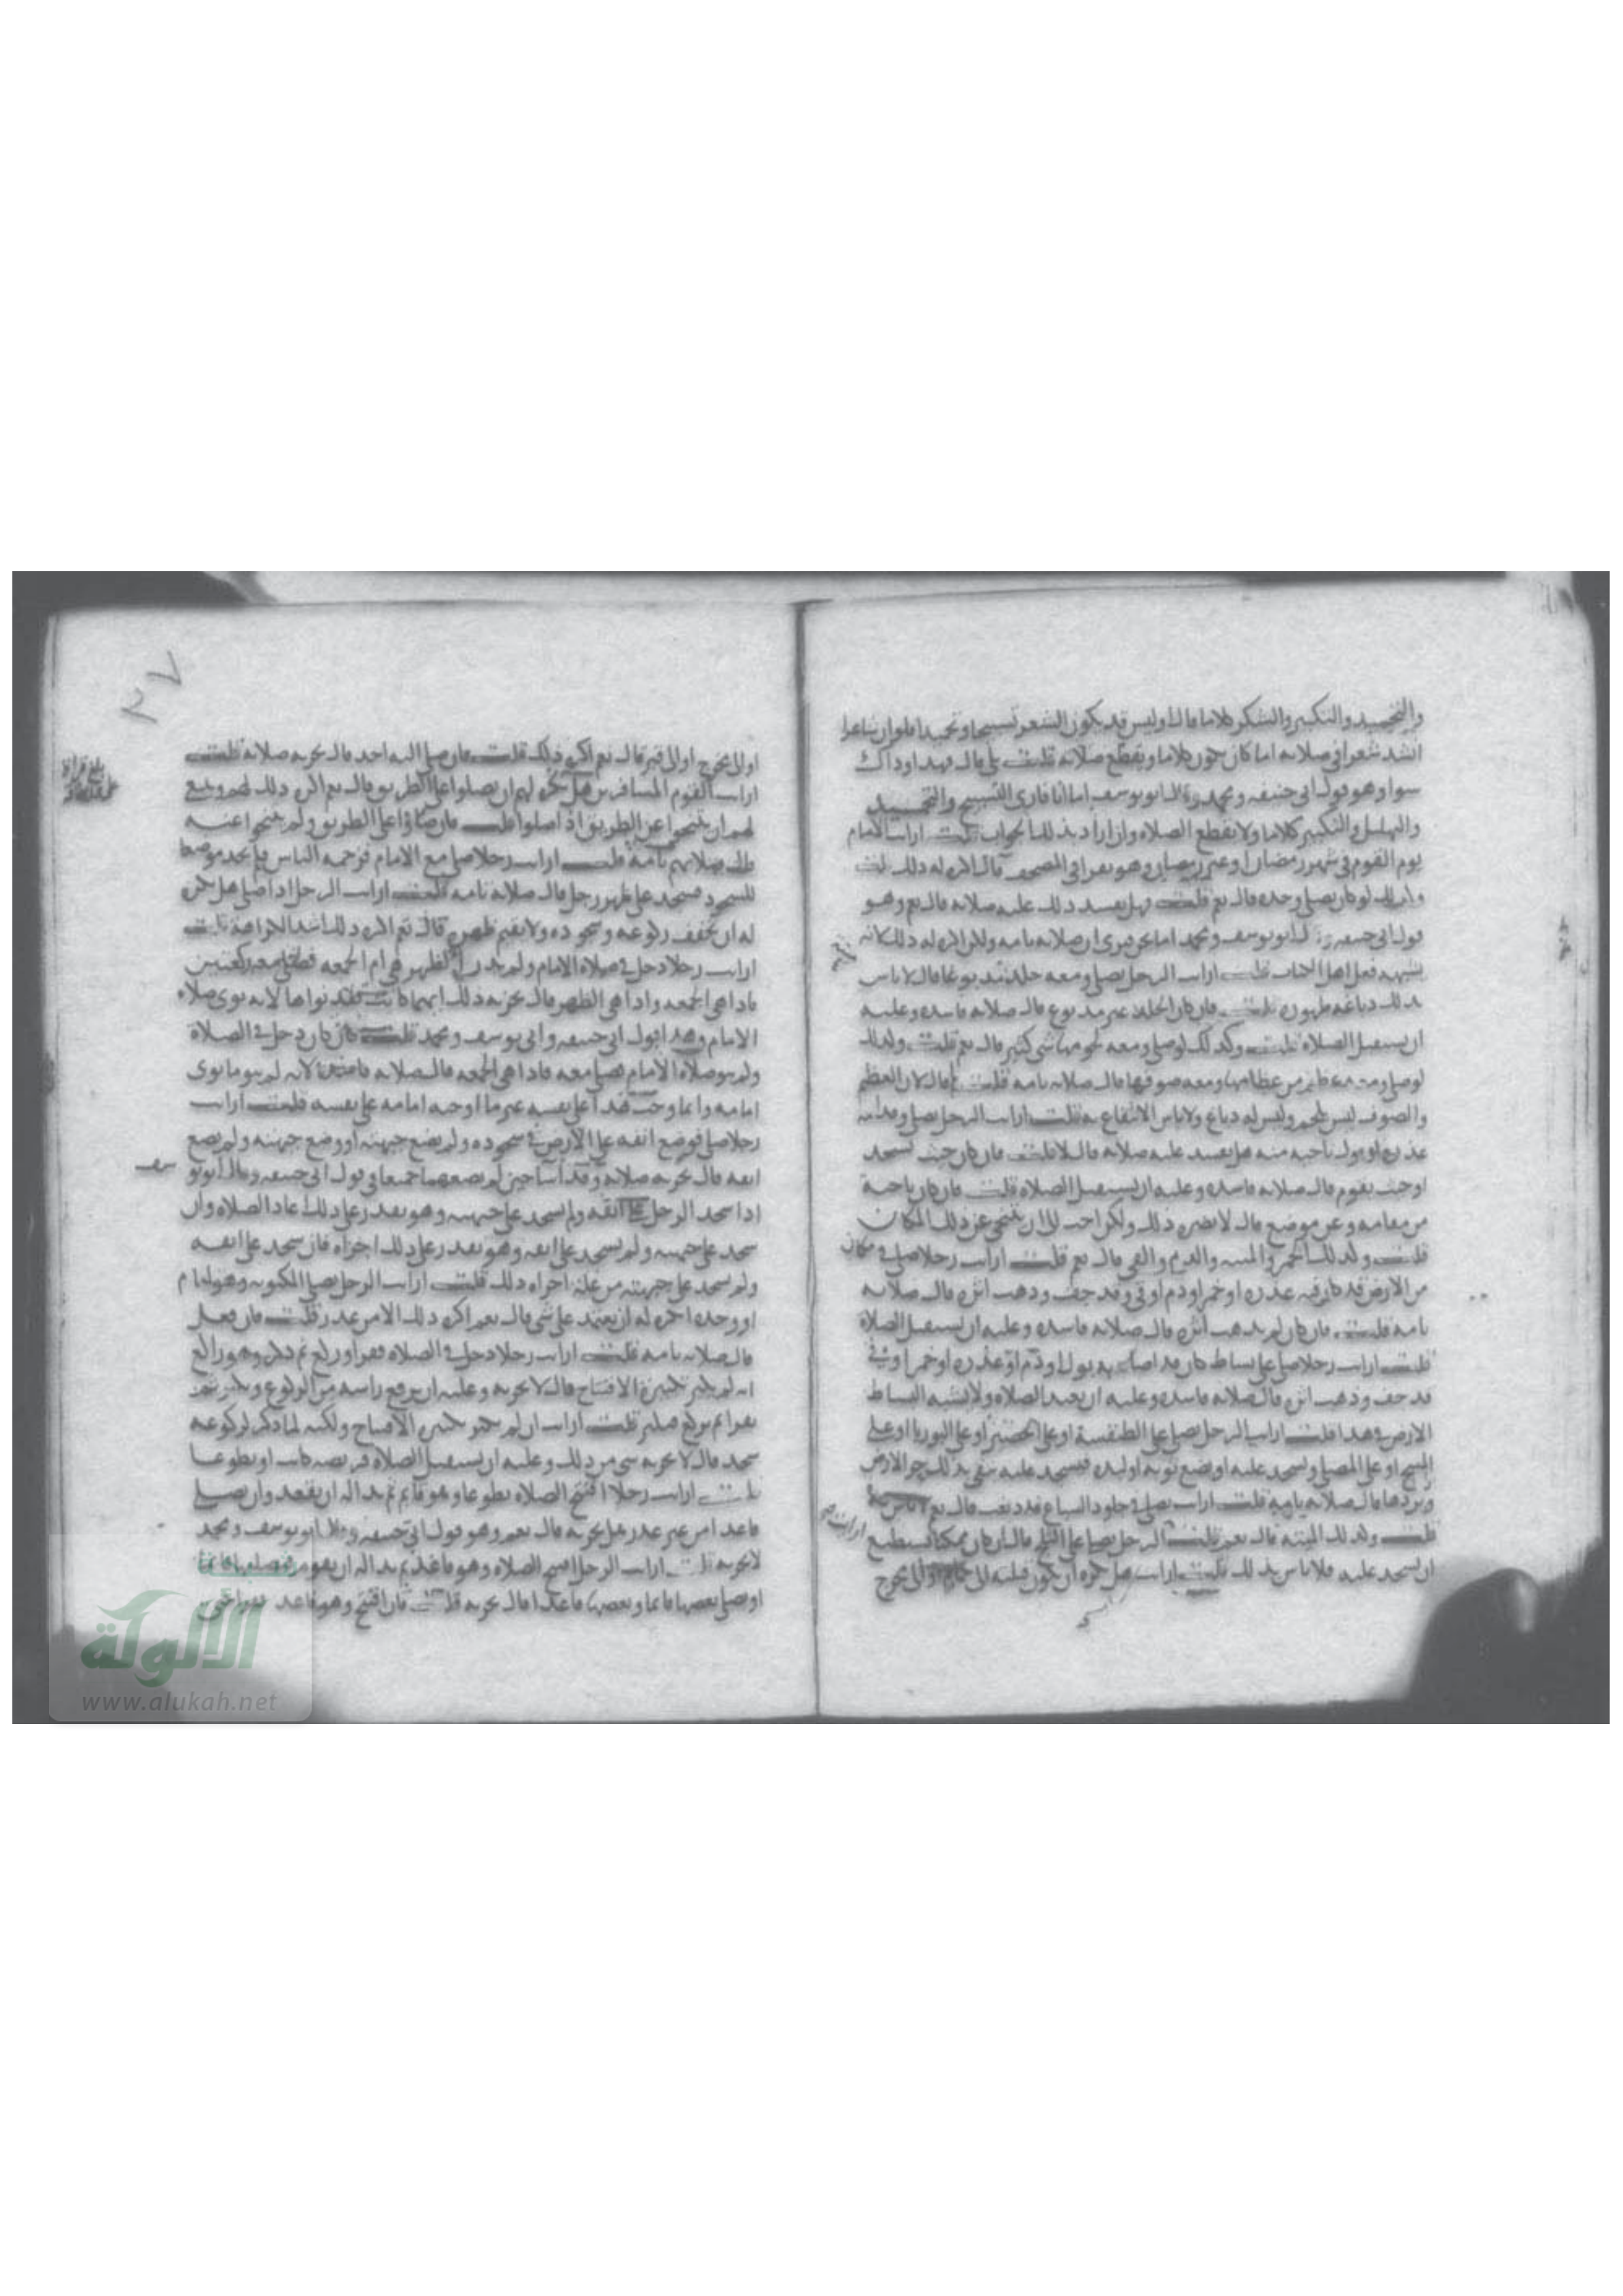 والتحميد والتكبير والشكر كلاما قال اوليس قد يكون الشعر تسبيحا وتحميدا فلو ان شاعرا
انشد شعرا في صلاته اما كان يكون كلاما ويقطع صلاته قلت بلى قال فهذا وذاك
سوا وهو قول ابي حنيفه ومحمد وقال ابو يوسف اما انا فارى التسبيح والتحميد
والتهليل والتكبير كلاما ولا يقطع الصلاه وان اراد بذلك الجواب قلت ارايت الامام
يوم القوم في شهر رمضان او غير رمضان وهو يقرا في المصحف قال اكره له ذلك قلت
وكذلك لو كان يصلي وحده قال نعم قلت فهل يفسد ذلك عليه صلاته قال نعم وهو
قول ابي حنيفه وقال ابو يوسف ومحمد اما نحن فنرى ان صلاته تامه ولكن اكره له ذلك لانه
يشبه فعل اهل الكتاب قلت ارايت الرجل يصلي ومعه جلد مدبوغا قال لا باس
بذلك دباغه طهوره قلت فان كان الجلد غير مدبوغ قال صلاته فاسده وعليه
ان يستقبل الصلاه قلت وكذلك لو صلى ومعه لحومها شي كثير قال نعم قلت وكذلك
لو صلى ومعه عظم من عظامها ومعه صوفها قال صلاته تامه قلت قال لان العظم
والصوف ليس بلحم وليس له دباغ ولا باس الانتفاع به قلت ارايت الرجل يصلي وقدامه
عذره او بول ناحيه منه هل يفسد عليه صلاته قال لا قلت فان كان حيث يسجد
او حيث يقوم قال صلاته فاسده وعليه ان يستقبل الصلاه قلت فان كان ناحية
من مقامه وعن موضع قال لا يضره ذلك ولكن احب الي ان يتنحى عن ذلك المكان
قلت وكذلك الخمر والميته والدم والقي قال نعم قلت ارايت رجلا صلى في مكان
من الارض قد كان فيه عذره او خمر او دم او قي وقد جف وذهب اثره قال صلاته
تامه قلت فان كان لم يذهب اثره قال صلاته فاسده وعليه ان يستقبل الصلاة
قلت ارايت رجلا صلى على بساط كان قد اصابه بول او دم او عذره او خمر او قي
قد جف وذهب اثره قال صلاته فاسده وعليه ان يعيد الصلاه ولا يشبه البساط
الارض في هذا قلت ارايت الرجل يصلي على الطنفسة او على الحصير او على البوريا او على
المسح او على المصلى ويسجد عليه او يضع ثوبه او لبده فيسجد عليه يتقي بذلك حر الارض
وبردها قال صلاته تامه قلت ارايت يصلي في جلود السباع قد دبغت قال نعم لا باس به
قلت وكذلك الميته قال نعم قلت الرجل يصلي على الثلج قال ان كان ممكنا يستطيع
ان يسجد عليه فلا باس بذلك قلت ارايت هل تكره ان تكون قبلته الى حمام او الى مخرج
ارايت
٢٧
بلغ قراة
او الى مخرج او الى قبر قال نعم اكره ذلك قلت فان صلى اليه احد قال تجزيه صلاته قلت
ارايت القوم المسافرين هل تكره لهم ان يصلوا على الطريق قال نعم اكره ذلك لهم وينبغي
لهم ان يتنحوا عن الطريق اذا صلوا قلت فان صلوا على الطريق ولم يتنحوا عنه
قال صلاتهم تامه قلت ارايت رجلا صلى مع الامام فزحمه الناس فلم يجد موضعا
للسجود فسجد على ظهر رجل قال صلاته تامه قلت ارايت الرجل اذا صلى هل تكره
له ان يخفف ركوعه وسجوده ولا يقيم ظهره قال نعم اكره ذلك اشد الكراهة قلت
ارايت رجلا دخل في صلاه الامام ولم يدر الظهر هي ام الجمعه فصلى معه ركعتين
فاذا هي الجمعه واذا هي الظهر قال تجزيه ذلك ايهما كانت فقد نواها لانه نوى صلاه
الامام وهذا قول ابي حنيفه وابي يوسف ومحمد قلت فان كان دخل في الصلاة
ولم ينو صلاة الامام يصلي معه فاذا هي الجمعه قال صلاته فاسده لانه لم ينو ما نوى
امامه وانما وجب هذا على نفسه غير ما اوجبه امامه على نفسه قلت ارايت
رجلا صلى فوضع انفه على الارض في سجوده ولم يضع جبهته او وضع جبهته ولم يضع
انفه قال تجزيه صلاته وقد اسا حين لم يضعهما جميعا في قول ابي حنيفه وقال ابو يوسف
اذا سجد الرجل على انفه ولم يسجد على جبهته وهو يقدر على ذلك اعاد الصلاه وان
سجد على جبهته ولم يسجد على انفه وهو يقدر على ذلك اجزاه فان سجد على انفه
ولم يسجد على جبهته من علة اجزاه ذلك قلت ارايت الرجل يصلي المكتوبه وهو امام
او وحده اتكره له ان يعتمد على شي قال نعم اكره ذلك الا من عذر قلت فان فعل
قال صلاته تامه قلت ارايت رجلا دخل في الصلاه فقرا وركع ثم ذكر وهو راكع
انه لم يكبر تكبيرة الافتتاح قال لا تجزيه وعليه ان يرفع راسه من الركوع ويكبر ثم
يقرا ثم يركع قلت ارايت ان لم يكبر تكبيره الافتتاح ولكنه لما ذكر كبر لركوعه
سجد قال لا تجزيه شي من ذلك وعليه ان يستقبل الصلاه فريضه كانت او تطوعا
قلت ارايت رجلا افتتح الصلاه تطوعا وهو قائم ثم بدا له ان يقعد وان يصلي
قاعدا من غير عذر هل تجزيه قال نعم وهو قول ابي حنيفه وقال ابو يوسف ومحمد
لا تجزيه قلت ارايت الرجل افتتح الصلاه وهو قاعد ثم بدا له ان يقوم فيصليها قائما
او صلى بعضها قائما وبعضها قاعدا قال تجزيه قلت فان افتتح وهو قاعد
شبكة
الألوكة
www.alukah.net